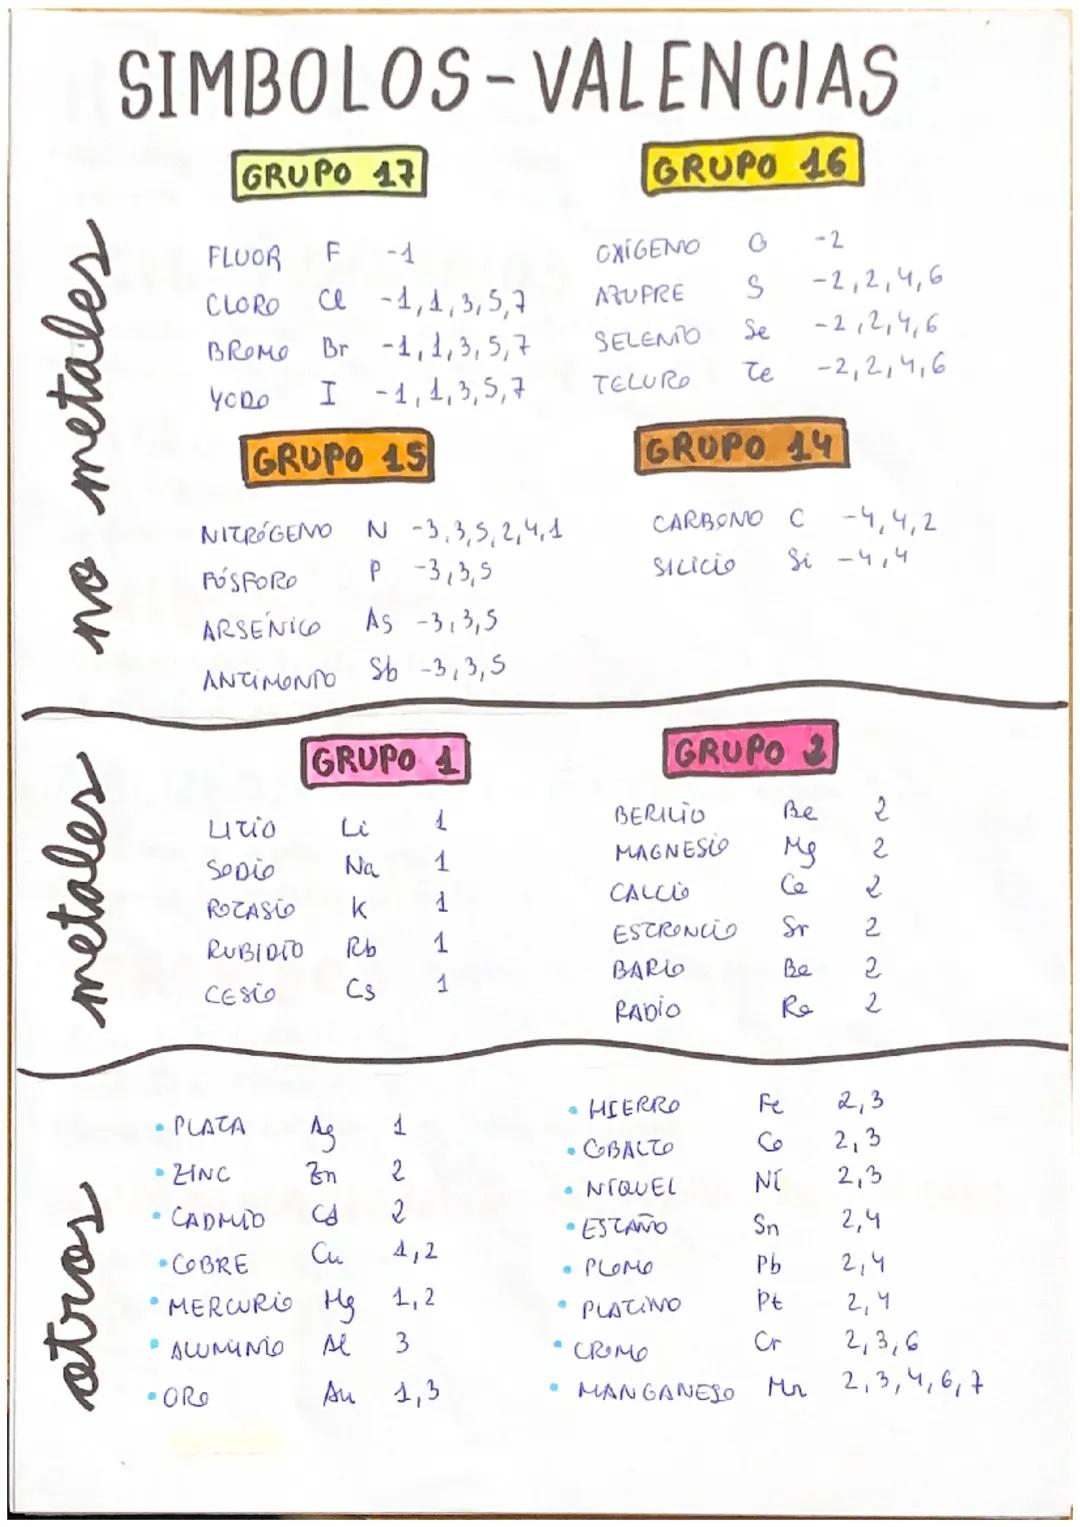 SIMBOLOS-VALENCIAS
no metales
GRUPO 17
FLUOR F -1
CLORO Cl -1,1,3,5,7
BROMO Br -1,1,3,5,7
YODO I -1,1,3,5,7
GRUPO 16
OXÍGENO O -2
AZUFRE S -2,2,4,6
SELENIO Se -2,2,4,6
TELURO Te -2,2,4,6
GRUPO 15
NITRÓGENO N -3,3,5,2,4,1
FÓSFORO P -3,3,5
ARSÉNICO As -3,3,5
ANTIMONIO Sb -3,3,5
GRUPO 14
CARBONO C -4,4,2
SILICIO Si -4,4
metales
GRUPO 1
LITIO Li 1
SODIO Na 1
POTASIO K 1
RUBIDIO Rb 1
CESIO Cs 1
GRUPO 2
BERILIO Be 2
MAGNESIO Mg 2
CALCIO Ca 2
ESTRONCIO Sr 2
BARIO Ba 2
RADIO Ra 2
otros
• PLATA Ag 1
• ZINC Zn 2
• CADMIO Cd 2
• COBRE Cu 1,2
• MERCURIO Hg 1,2
• ALUMINIO Al 3
• ORO Au 1,3
• HIERRO Fe 2,3
• COBALTO Co 2,3
• NIQUEL Ni 2,3
• ESTAÑO Sn 2,4
• PLOMO Pb 2,4
• PLATINO Pt 2,4
• CROMO Cr 2,3,6
• MANGANESO Mn 2,3,4,6,7